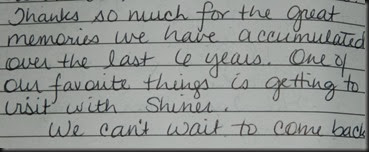 Thanks so much for the great
memories we have accumulated
over the last 6 years. One of
our favorite things is getting to
visit with Shiner.
We can't wait to come back